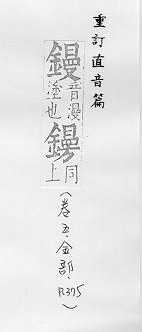 重訂直音篇
鏝
音漫
塗也
同
上
(卷五·金部·P.375)